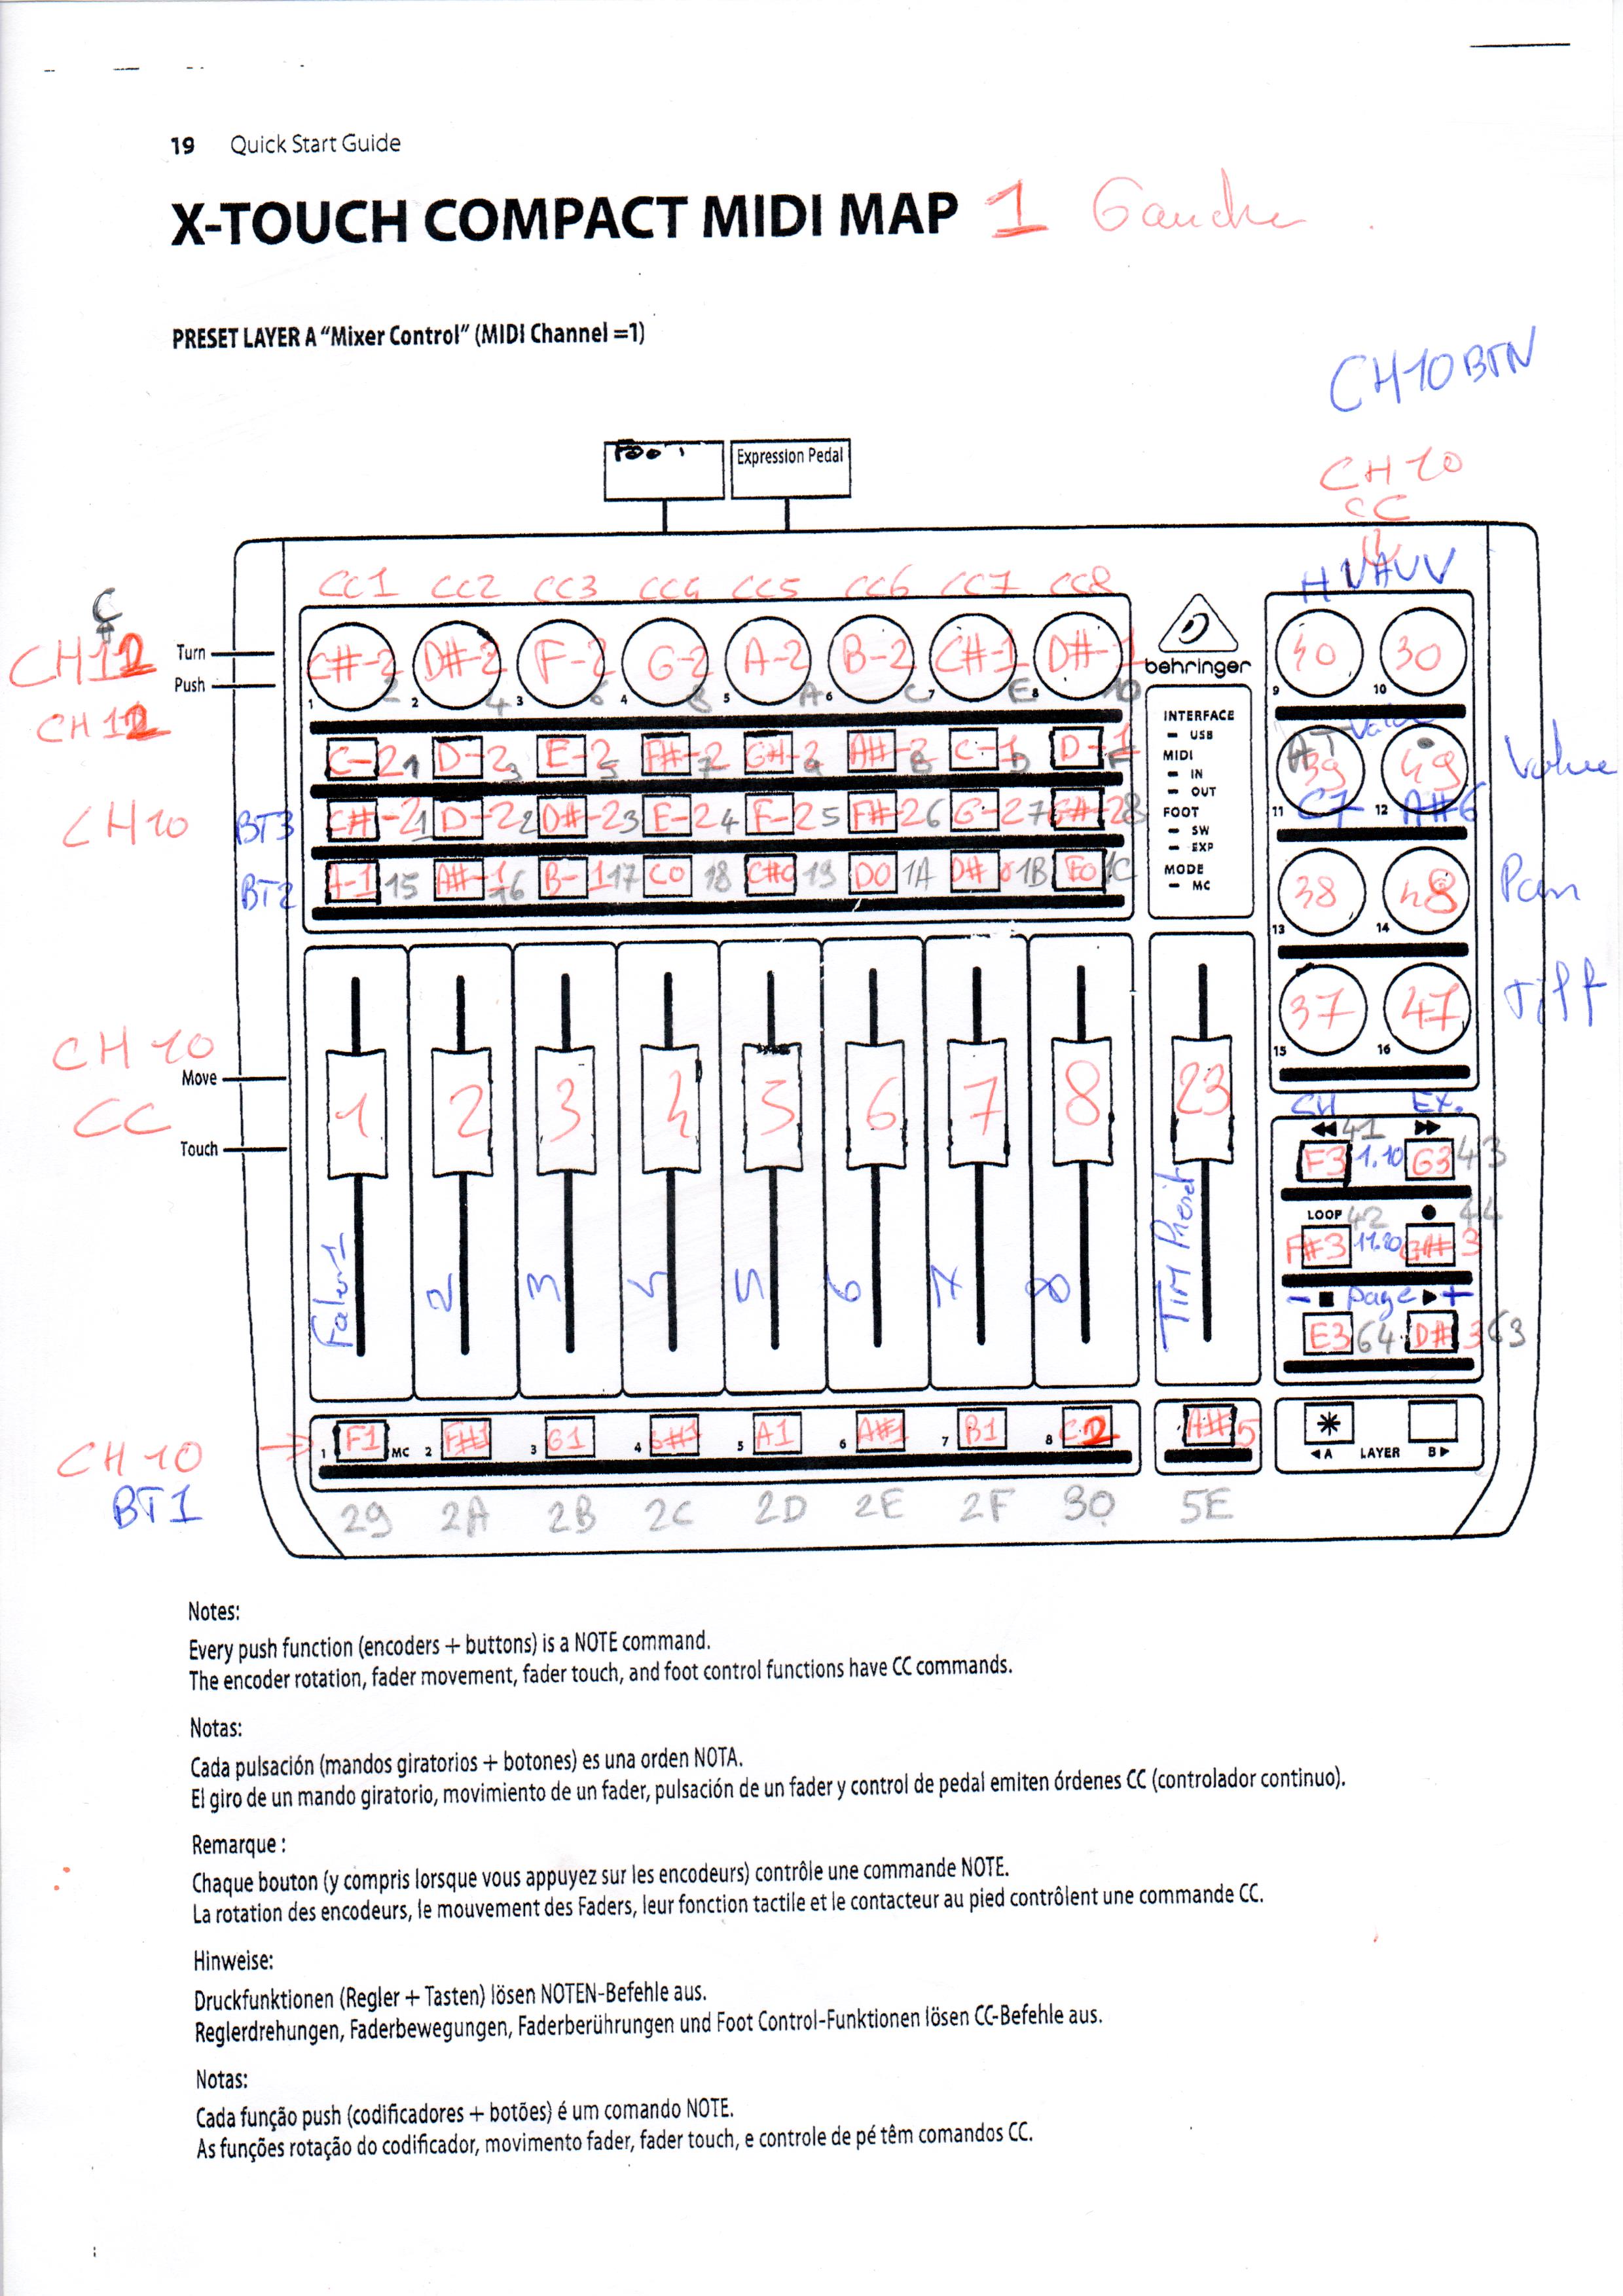 19 Quick Start Guide
X-TOUCH COMPACT MIDI MAP 1 Gauche
PRESET LAYER A “Mixer Control” (MIDI Channel =1)
CH10 BTN
CH 10
CC
Expression Pedal
CC1 CC2 CC3 CC4 CC5 CC6 CC7 CC8
C
CH12
Turn
Push
CH12
C#-2 D#-2 F-2 G-2 A-2 B-2 C#-1 D#-1
1 2 3 4 5 6 7 8
2 4 6 8 A C E 10
behringer
40 30
9 10
C-2 1 D-2 3 E-2 5 F#-2 7 G#-2 9 A#-2 B C-1 D D-1 F
INTERFACE
USB
MIDI
IN
OUT
FOOT
SW
EXP
MODE
MC
39 49 Value
11 C7 12 A#6
CH10 BT3 C#-2 1 D-2 2 D#-2 3 E-2 4 F-2 5 F#-2 6 G-2 7 G#-2 8
BT2 A-1 15 A#-1 16 B-1 17 C0 18 C#0 19 D0 1A D#0 1B E0 1C
38 48 Pan
13 14
37 47
15 16
CH 10
Move
CC
Touch
1 2 3 4 5 6 7 8 23
Fader 1 2 3 4 5 6 7 8
41
F3 1.10 G3 43
LOOP 42 44
F#3 11.20 G#3
- page +
E3 64 D#3 63
CH 10
BT1
1 F1 MC 2 F#1 3 G1 4 G#1 5 A1 6 A#1 7 B1 8 C2 A#5
A LAYER B
29 2A 2B 2C 2D 2E 2F 30 5E
Notes:
Every push function (encoders + buttons) is a NOTE command.
The encoder rotation, fader movement, fader touch, and foot control functions have CC commands.
Notas:
Cada pulsación (mandos giratorios + botones) es una orden NOTA.
El giro de un mando giratorio, movimiento de un fader, pulsación de un fader y control de pedal emiten órdenes CC (controlador continuo).
Remarque :
Chaque bouton (y compris lorsque vous appuyez sur les encodeurs) contrôle une commande NOTE.
La rotation des encodeurs, le mouvement des Faders, leur fonction tactile et le contacteur au pied contrôlent une commande CC.
Hinweise:
Druckfunktionen (Regler + Tasten) lösen NOTEN-Befehle aus.
Reglerdrehungen, Faderbewegungen, Faderberührungen und Foot Control-Funktionen lösen CC-Befehle aus.
Notas:
Cada função push (codificadores + botões) é um comando NOTE.
As funções rotação do codificador, movimento fader, fader touch, e controle de pé têm comandos CC.